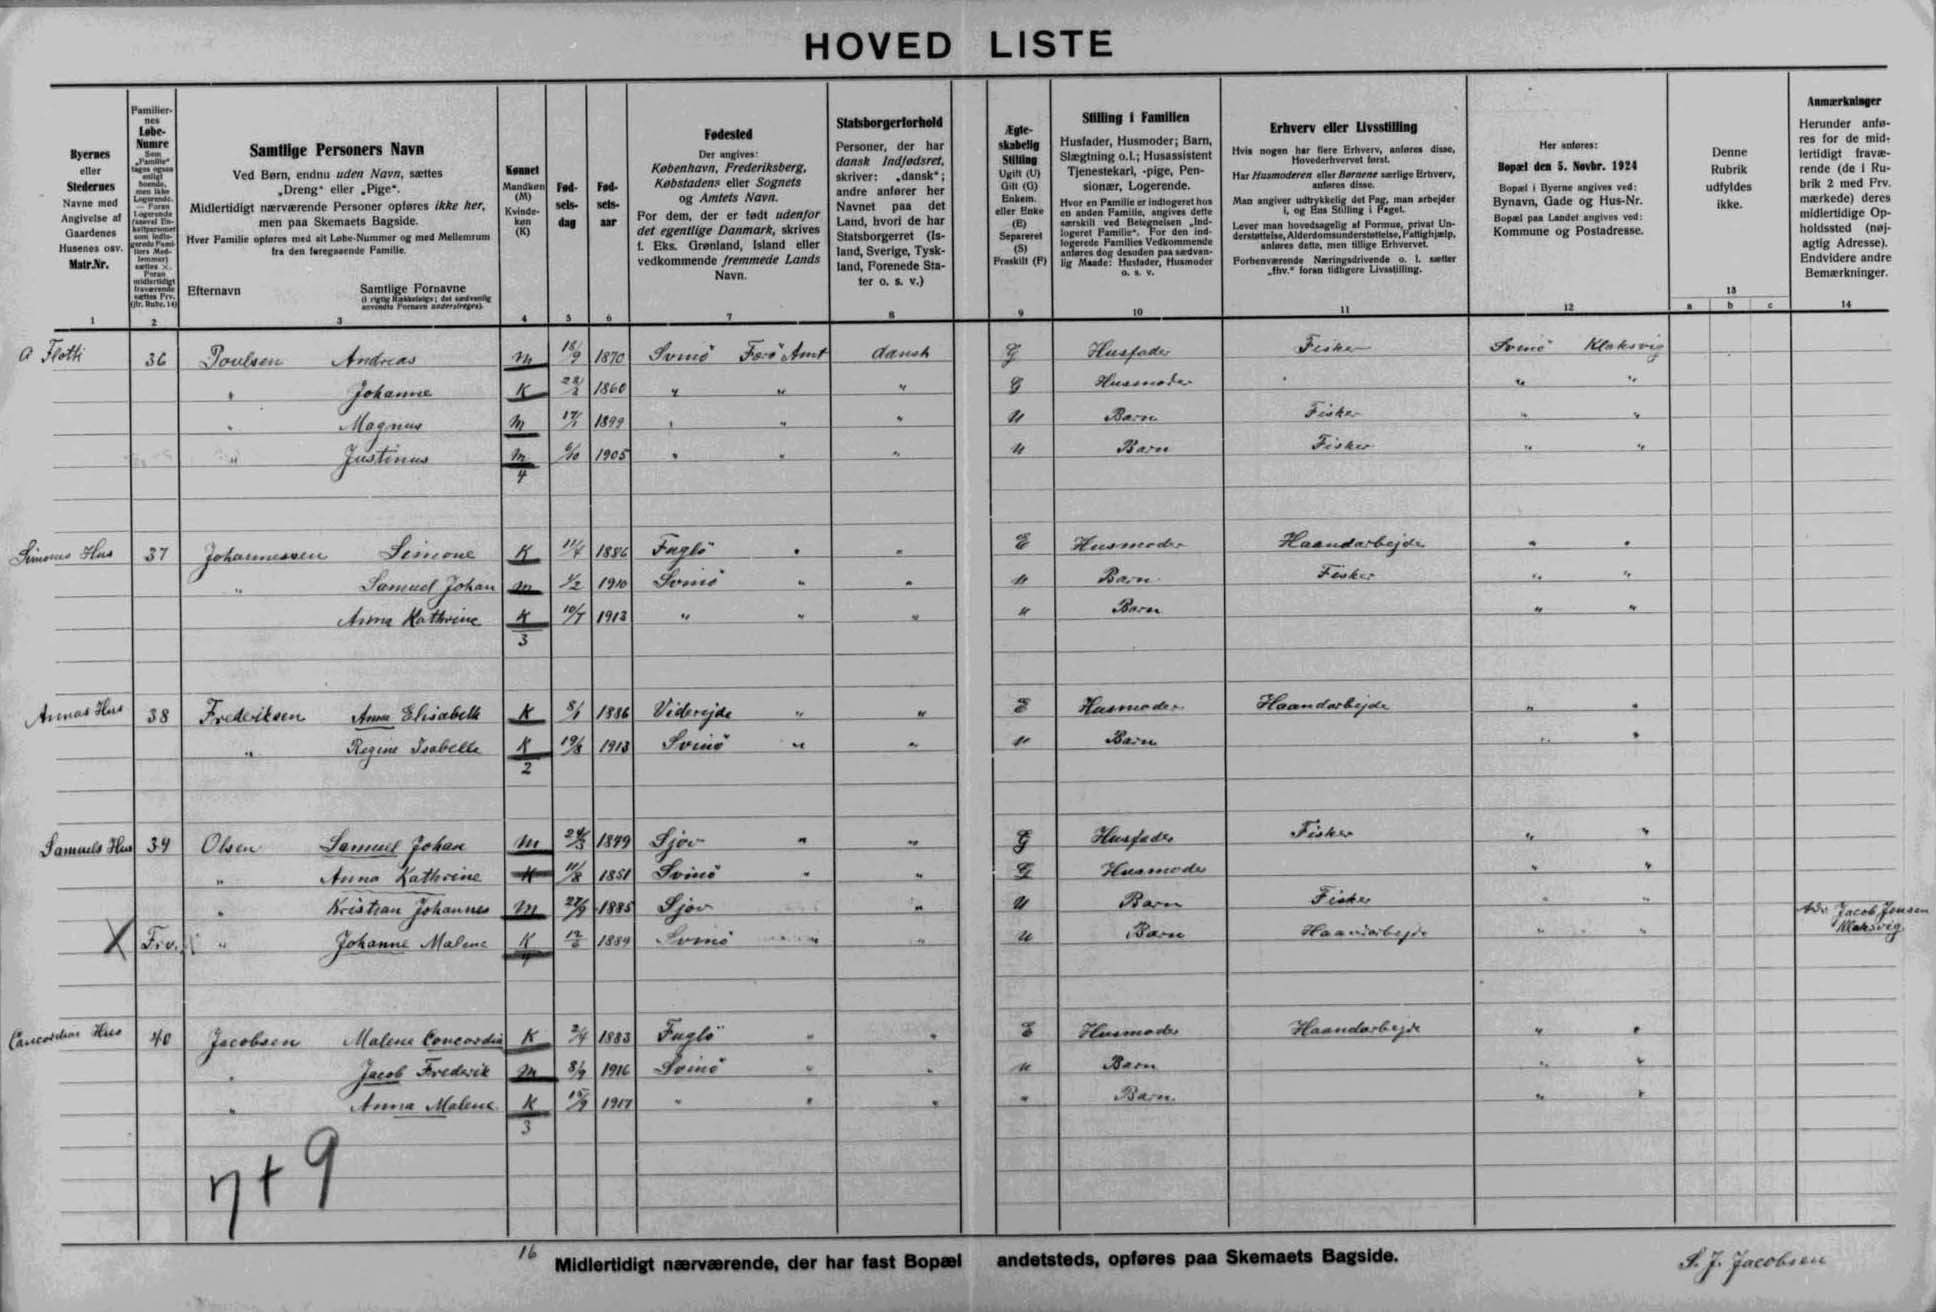 HOVED LISTE
Byernes
eller
Stedernes
Navne med
Angivelse af
Gaardenes
Husenes osv.
Matr.Nr.
1
Familier-
nes
Løbe-
Numre
Som
„Familie"
tages ogsaa
enligt
boende,
men ikke
Logerende.
— Foran
Logerende
sættes ×.
Foran
midlertidigt
fraværende
sættes Frv.
(jfr. Rubr. 14)
2
Samtlige Personers Navn
Ved Børn, endnu uden Navn, sættes
„Dreng" eller „Pige".
Midlertidigt nærværende Personer opføres ikke her,
men paa Skemaets Bagside.
Hver Familie opføres med sit Løbe-Nummer og med Mellemrum
fra den foregaaende Familie.
Efternavn Samtlige Fornavne
(i rigtig Rækkefølge; det sædvanlig
anvendte Fornavn understreges).
3
Kønnet
Mandkøn
(M)
Kvinde-
køn
(K)
4
Fød-
sels-
dag
5
Fød-
sels-
aar
6
Fødested
Der angives:
København, Frederiksberg,
Købstadens eller Sognets
og Amtets Navn.
For dem, der er født udenfor
det egentlige Danmark, skrives
f. Eks. Grønland, Island eller
vedkommende fremmede Lands
Navn.
7
Statsborgerforhold
Personer, der har
dansk Indfødsret,
skriver: „dansk";
andre anfører her
Navnet paa det
Land, hvori de har
Statsborgerret (Is-
land, Sverige, Tysk-
land, Forenede Sta-
ter o. s. v.)
8
Ægte-
skabelig
Stilling
Ugift (U)
Gift (G)
Enkem.
eller Enke
(E)
Separeret
(S)
Fraskilt (F)
9
Stilling i Familien
Husfader, Husmoder; Barn,
Slægtning o.l.; Husassistent
Tjenestekarl, -pige, Pen-
sionær, Logerende.
Hvor en Familie er indlogeret hos
en anden Familie, angives dette
særskilt ved Betegnelsen „Ind-
logeret Familie". For den ind-
logerede Families Vedkommende
anføres dog desuden paa sædvan-
lig Maade: Husfader, Husmoder
o. s. v.
10
Erhverv eller Livsstilling
Hvis nogen har flere Erhverv, anføres disse,
Hovederhvervet først.
Har Husmoderen eller Børnene særlige Erhverv,
anføres disse.
Man angiver udtrykkelig det Fag, man arbejder
i, og Ens Stilling i Faget.
Lever man hovedsagelig af Formue, privat Un-
derstøttelse, Alderdomsunderstøttelse, Fattighjælp,
anføres dette, men tillige Erhvervet.
Forhenværende Næringsdrivende o. l. sætter
„fhv." foran tidligere Livsstilling.
11
Her anføres:
Bopæl den 5. Novbr. 1924
Bopæl i Byerne angives ved:
Bynavn, Gade og Hus-Nr.
Bopæl paa Landet angives ved:
Kommune og Postadresse.
12
Denne
Rubrik
udfyldes
ikke.
13
a b c
Anmærkninger
Herunder anfø-
res for de mid-
lertidigt fravæ-
rende (de i Ru-
brik 2 med Frv.
mærkede) deres
midlertidige Op-
holdssted (nøj-
agtig Adresse).
Endvidere andre
Bemærkninger.
14
A Flotti 36 Poulsen Andreas M 18/9 1870 Svinö Færö Amt dansk G Husfader Fisker Svinö Klaksvig
" Johanne K 1860 " " " G Husmoder " "
" Magnus M 17/1 1899 " " " U Barn Fisker " "
" Justinus M 6/10 1905 " " " U Barn Fisker " "
4
Simones Hus 37 Johannessen Simone K 11/7 1886 Fuglö " " E Husmoder Haandarbejde " "
" Samuel Johan M 1/2 1910 Svinö " " U Barn Fisker " "
Anna Kathrine K 10/7 1913 " " " U Barn " "
3
Annas Hus 38 Frederiksen Anna Elisabeth K 8/1 1886 Viderejde " " E Husmoder Haandarbejde " "
" Regine Isabelle K 19/8 1913 Svinö " " U Barn " "
2
Samuels Hus 39 Olsen Samuel Johan M 24/3 1849 Sjov " " G Husfader Fisker " "
" Anna Kathrine K 11/8 1851 Svinö " " G Husmoder " "
" Kristian Johannes M 27/9 1885 Sjov " U Barn Fisker " "
X Frv. " Johanne Malene K 12/6 1889 Svinö " " U Barn Haandarbejde " " Adr. Jacob Jensen
Klaksvig
4
Concordias Hus 40 Jacobsen Malene Concordia K 2/4 1883 Fuglö " " E Husmoder Haandarbejde " "
" Jacob Frederik M 8/9 1916 Svinö " " U Barn " "
" Anna Malene K 15/9 1917 " " " " Barn " "
3
7+9
16
Midlertidigt nærværende, der har fast Bopæl andetsteds, opføres paa Skemaets Bagside.
S. J. Jacobsen